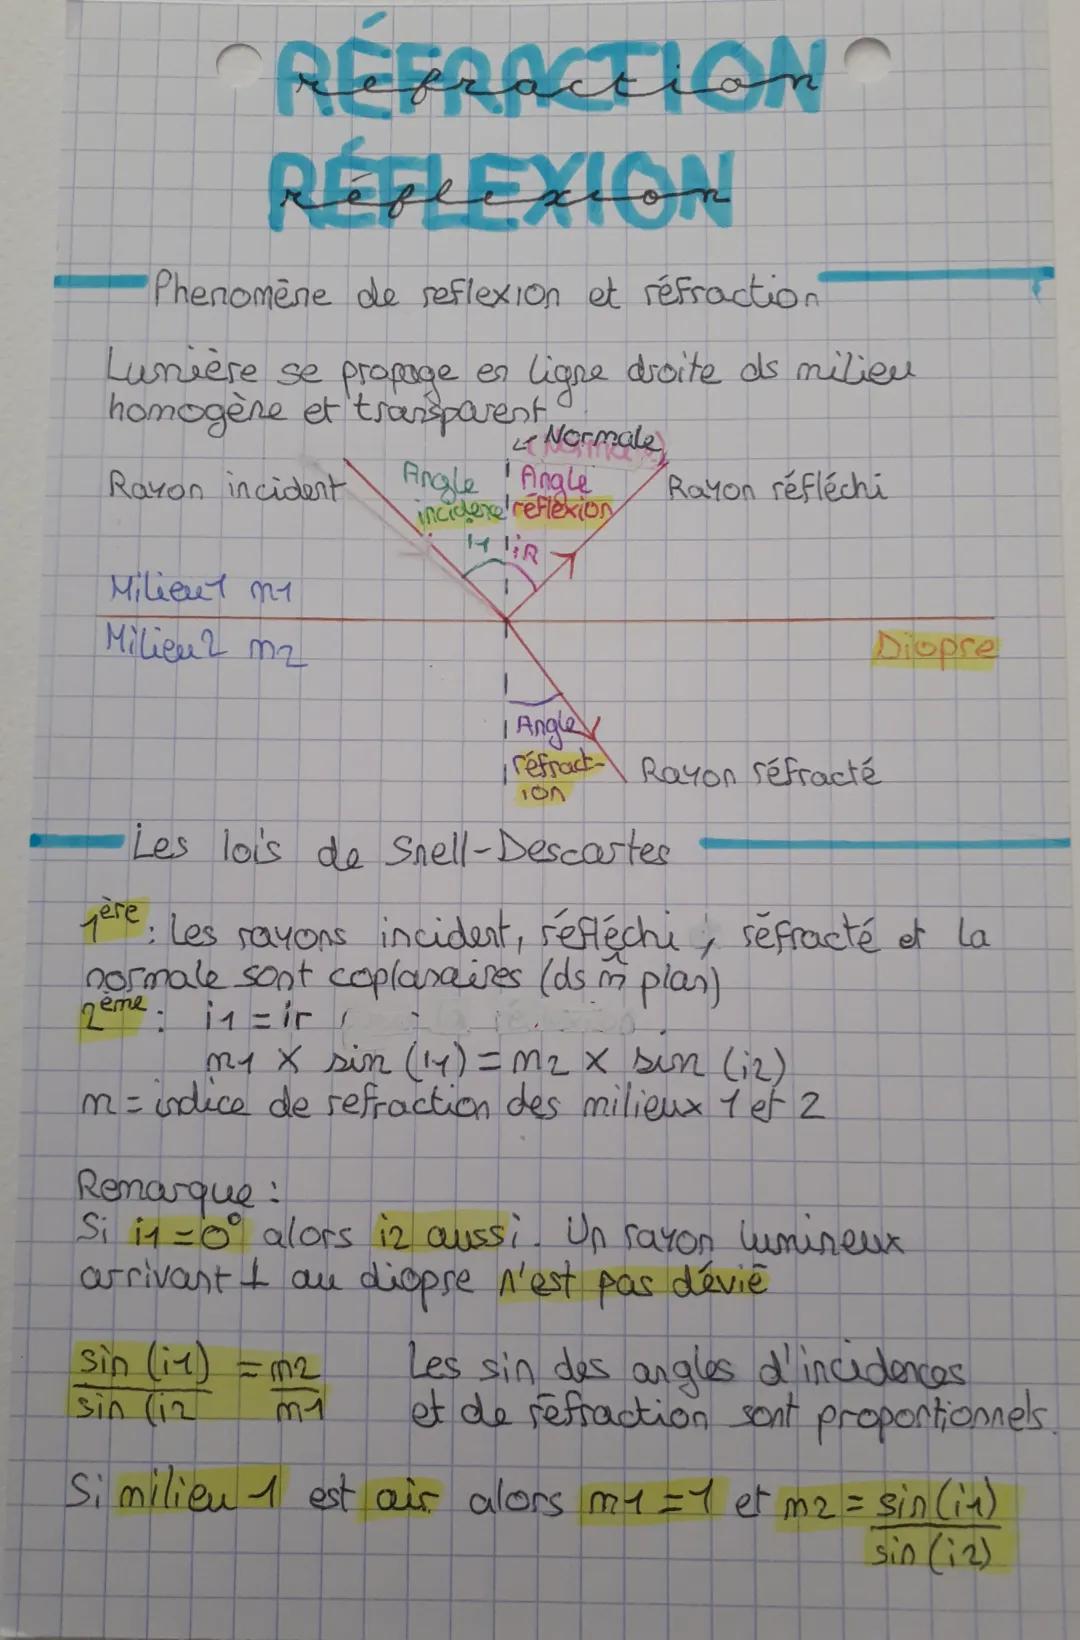 RÉFRACTION
refraction
RÉFLEXION
réflexion
Phenomène de reflexion et réfraction
Lumière se propage en ligne droite ds milieu
homogène et transparent
Normale
Rayon incident
Angle
incidence
Angle
réflexion
Rayon réfléchi
i1
iR
Milieu 1 n1
Milieu 2 n2
Diopre
Angle
réfract-
ion
Rayon réfracté
Les lois de Snell-Descartes
1ère : Les rayons incident, réfléchi, réfracté et la
normale sont coplanaires (ds m̂ plan)
2ème : i1 = ir
n1 × sin (i1) = n2 × sin (i2)
n = indice de refraction des milieux 1 et 2
Remarque :
Si i1 = 0° alors i2 aussi. Un rayon lumineux
arrivant ⊥ au diopre n'est pas dévié
sin (i1) = n2
sin (i2 n1
Les sin des angles d'incidences
et de réfraction sont proportionnels.
Si milieu 1 est air alors n1 = 1 et n2 = sin (i1)
sin (i2)